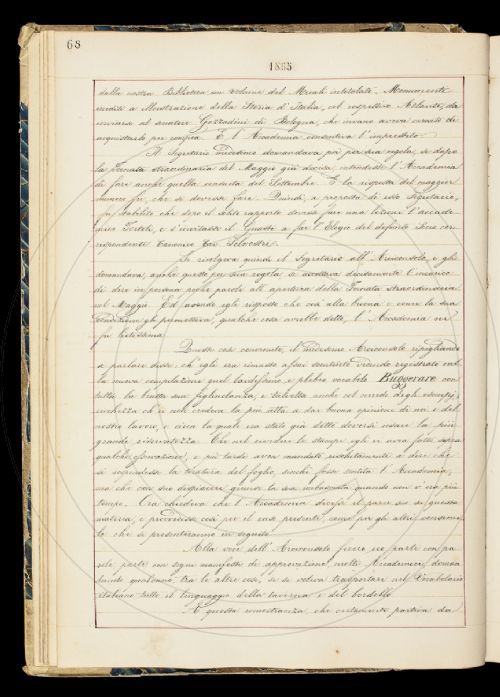 68
1885
della nostra Biblioteca un volume del Muzzi intitolato - Monumenti
inediti a illustrazione della Storia d'Italia, col rispettivo Atlante, da
inviarsi al senatore Gozzadini di Bologna, che invano aveva cercato di
acquistarlo per compra. E l'Accademia consentiva l'imprestito.
Il Segretario medesimo domandava poi per sua regola, se dopo
la Tornata straordinaria del Maggio già decisa intendesse l'Accademia
di fare anche quella consueta del Settembre. E la risposta del maggior
numero fu, che si dovesse fare. Quindi, a proposta di esso Segretario,
fu stabilito che dopo il solito rapporto dovesse fare una lezione l'accade
mico Tortoli, e s'invitasse il Guasti a far l'Elogio del defunto Socio cor
rispondente Canonico Silvestri.
Si rivolgeva quindi il Segretario all'Arciconsolo, e gli
domandava, anche questo per sua regola, se accettava decisamente l'incarico
di dire in persona poche parole all'apertura della Tornata straordinaria
nel Maggio. Ed avendo egli risposto che così alla buona e come la sua
condizione gli permetteva, qualche cosa avrebbe detto, l'Accademia ne
fu lietissima.
Queste cose convenute, il medesimo Arciconsolo ripigliando
a parlare disse ch'egli era rimasto assai sentito vedendo registrato nel
la nuova compilazione quel bassissimo e plebeo vocabolo Buggerare con
tutta la brutta sua figliolanza, e talvolta anche col corredo degli esempj;
ricchezza che ei non credeva la più atta a far buona opinione di noi e del
nostro lavoro, e circa la quale era stato già detto doversi usare la più
grande riservatezza. Che nel rivedere le stampe egli vi aveva fatte sopra
qualche osservazione, e più tardi aveva mandato a dire che
si sospendesse la tiratura del foglio, finchè fosse sentita l'Accademia,
ma che con suo dispiacere giunse la sua imbasciata quando non v'era più
tempo. Ora chiedeva che l'Accademia dicesse il parer suo su questa
materia, e provvedesse così per il caso presente, come per gli altri consimi
li che si presentassero in seguito.
Alla voce dell'Arciconsolo fecero eco parte con pa
role parte con segni manifesti di approvazione molti Accademici, doman
dando qualcuno tra le altre cose, se si voleva trasportare nel Vocabolario
italiano tutto il linguaggio della taverna e del bordello.
A questa rimostranza, che certamente partiva da